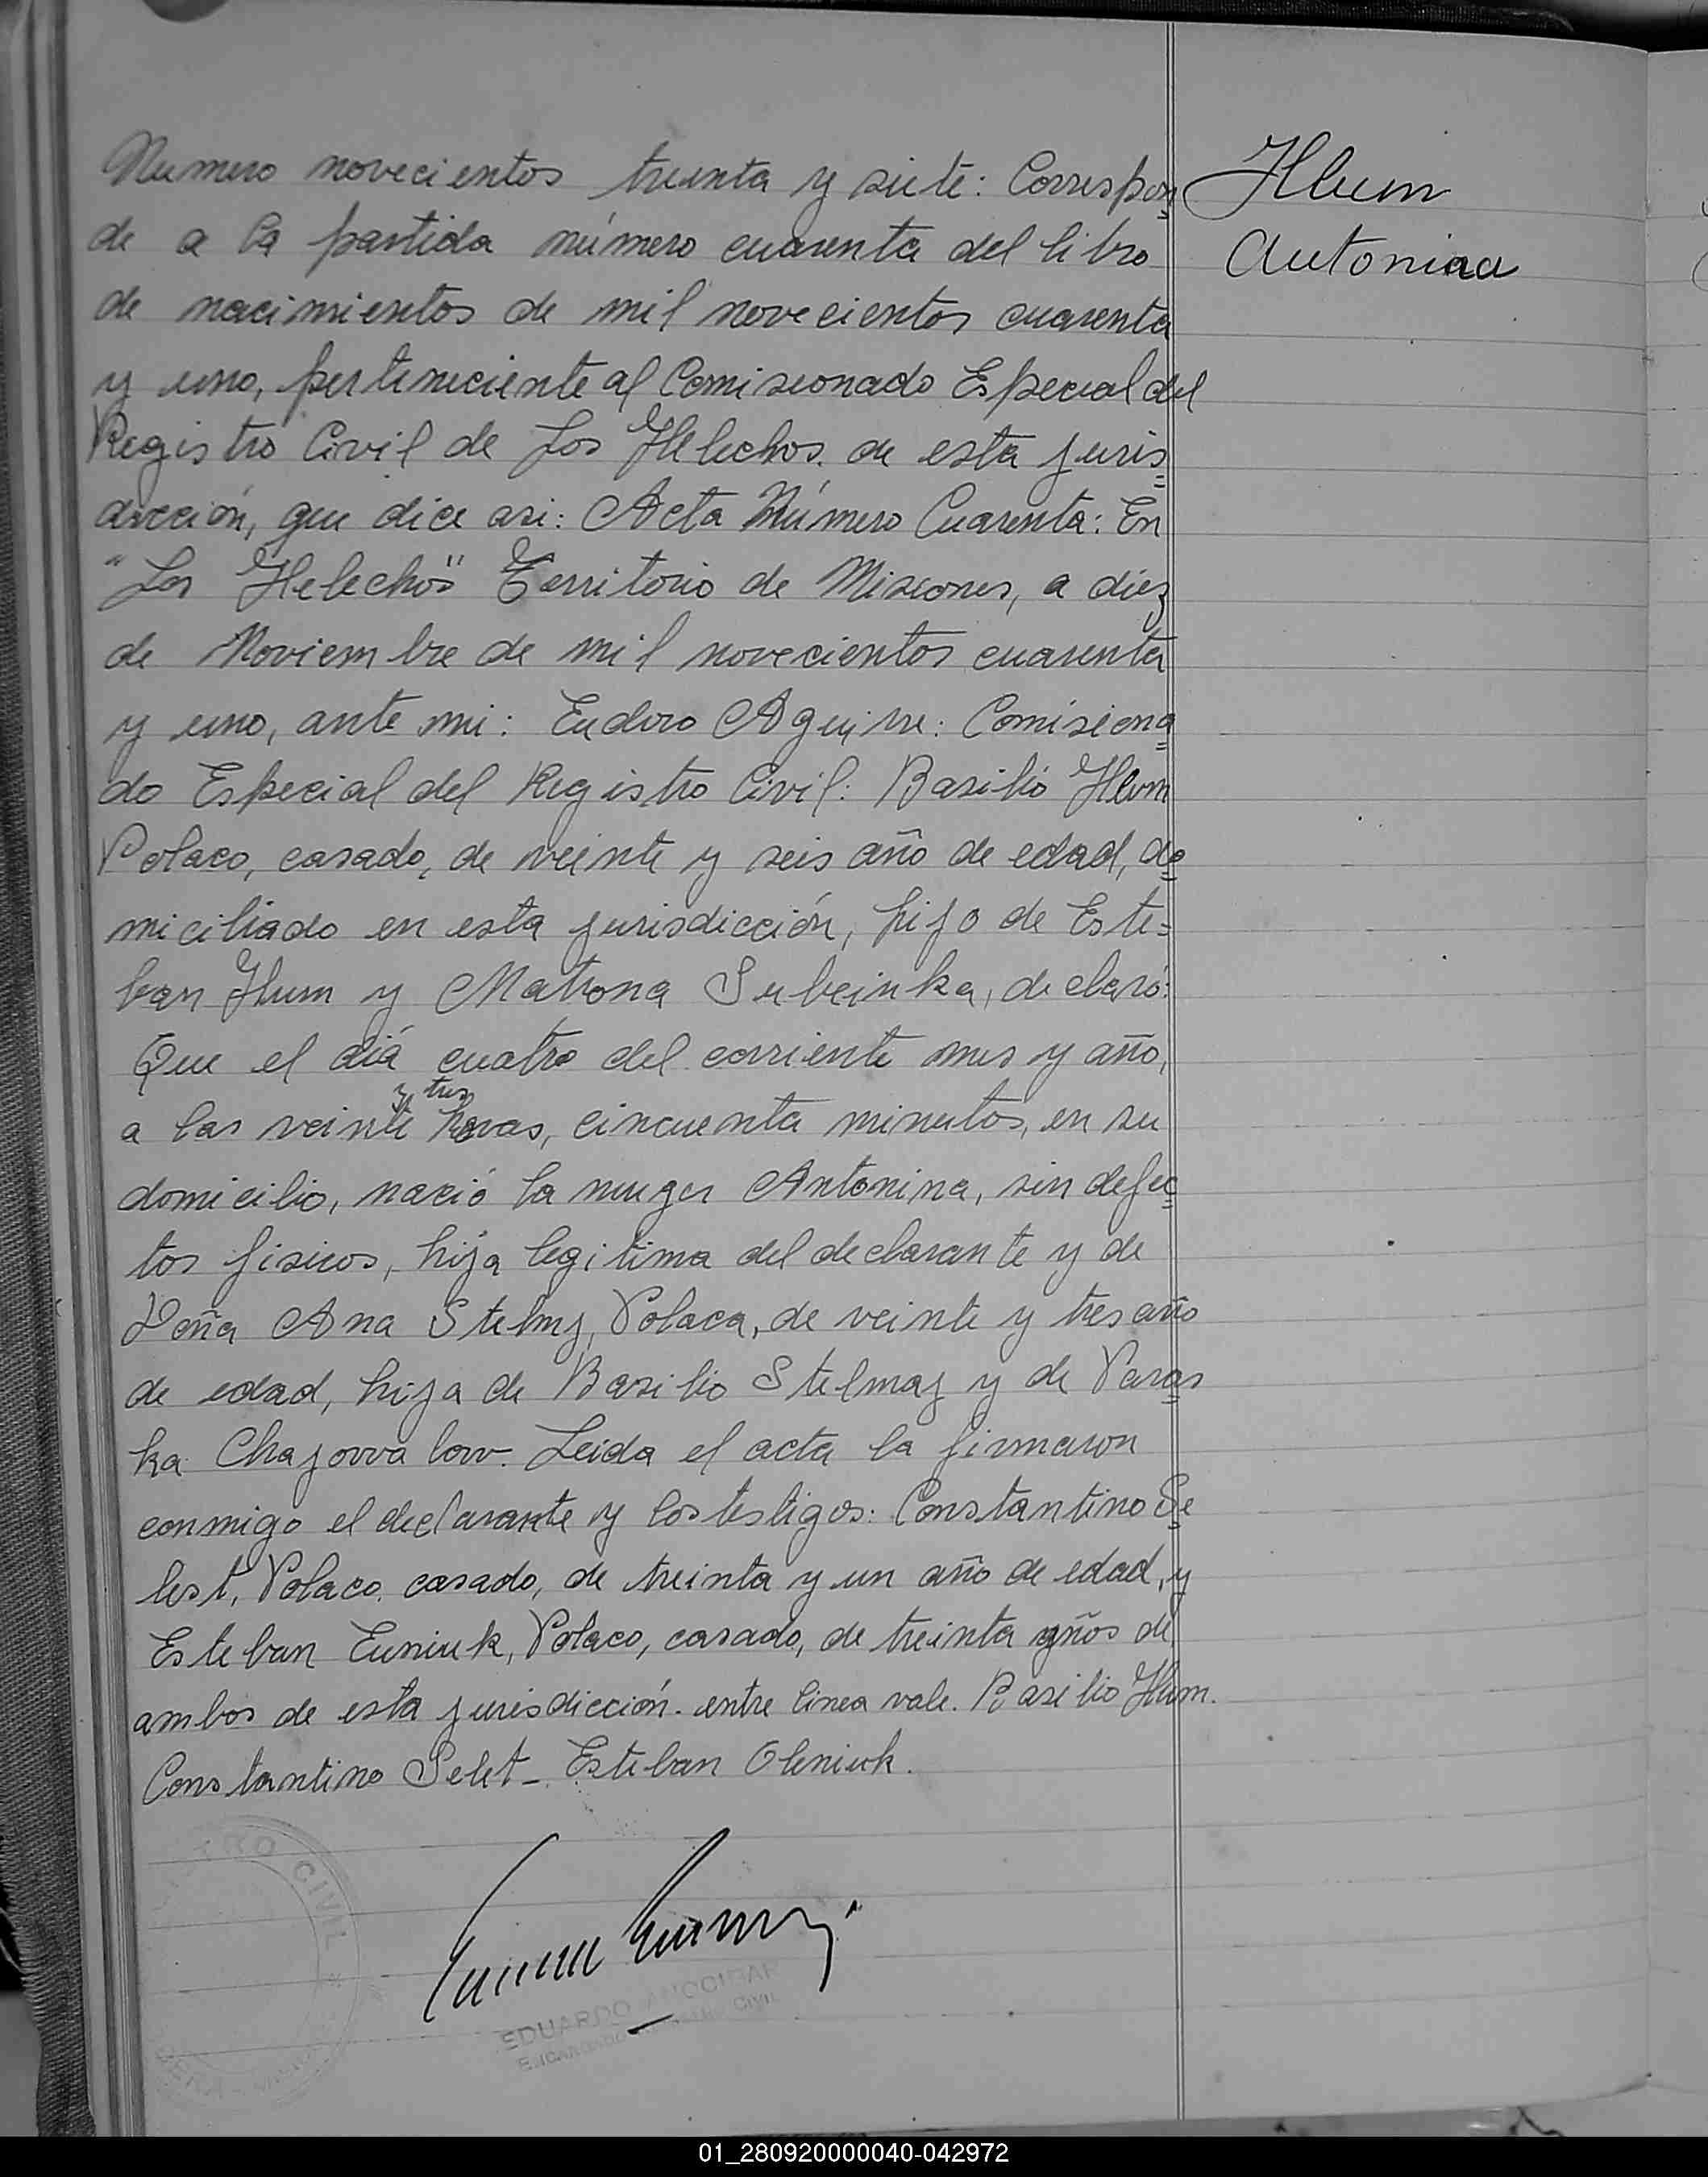 Numero novecientos treinta y siete: Correspon
de a la partida número cuarenta del libro
de nacimientos de mil novecientos cuarenta
y uno, perteneciente al Comisionado Especial del
Registro Civil de Los Helechos. de esta juris
dicción, que dice asi: Acta Número Cuarenta: En
"Los Helechos" Territorio de Misiones, a diez
de Noviembre de mil novecientos cuarenta
y uno, ante mi: Eudoro Aguirre: Comisiona
do Especial del Registro Civil: Basilio Hlum
Polaco, casado, de veinte y seis año de edad, do
miciliado en esta jurisdicción, hijo de Este=
ban Hlum y Matrona Subeinka, declaró:
Que el diá cuatro del corriente mes y año,
y tres
a las veinte horas, cincuenta minutos, en su
domicilio, nació la muger Antonina, sin defec
tos fisicos, hija legitima del declarante y de
Doña Ana Stelmj, Polaca, de veinte y tres año
de edad, hija de Basilio Stelmaj y de Paras
ka Chajowa low. Leida el acta la firmaron
conmigo el declarante y los testigos: Constantino Se
lest, Polaco, casado, de treinta y un año de edad, y
Esteban Euniuk, Polaco, casado, de treinta años de
ambos de esta jurisdicción. entre linea vale. Basilio Hlum.
Constantino Selet - Esteban Oleniuk.
Hlum
Antonina
CIVIL
EDUARDO
CIVIL
01_280920000040-042972